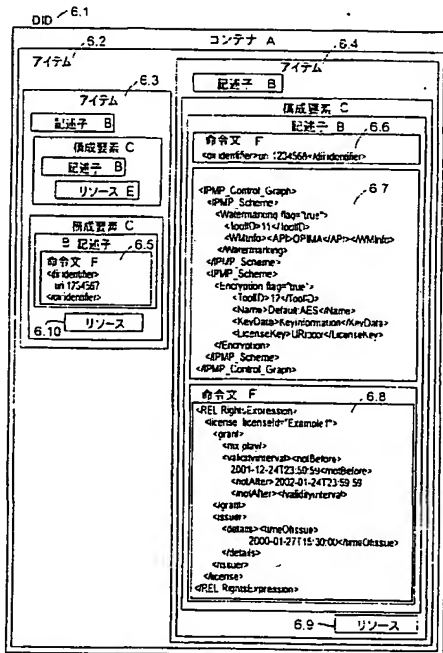 DID 6.1
コンテナ A
6.2
アイテム
6.3
アイテム
記述子 B
構成要素 C
記述子 B
リソース E
構成要素 C
B 記述子 6.5
命令文 F
<dii identifier>
uri 1234567
6.10
リソース
6.4
アイテム
記述子 B
構成要素 C
記述子 B 6.6
命令文 F
6.7
<IPMP_Control_Graph>
<IPMP_Scheme>
<Watermarking flag="true">
<ToolID>11</ToolID>
<WMInfo><API>OPIMA</API></WMInfo>
</Watermarking>
</IPMP_Scheme>
<IPMP_Scheme>
<Encryption flag="true">
<ToolID>12</ToolID>
<Name>Default:AES</Name>
<KeyData>KeyInformation</KeyData>
</Encryption>
</IPMP_Scheme>
</IPMP_Control_Graph>
命令文 F 6.8
<REL RightsExpression>
<license licenseId="Example1">
<grant>
<validityinterval><notBefore>
2001-12-24T23:50:59<notBefore>
<notAfter>2002-01-24T23 59 59
<notAfter></validityinterval>
</grant>
<issuer>
<details><timeOfIssue>
2000-01-27T15:30:00</timeOfIssue>
</details>
</issuer>
</license>
</REL RightsExpression>
6.9 リソース